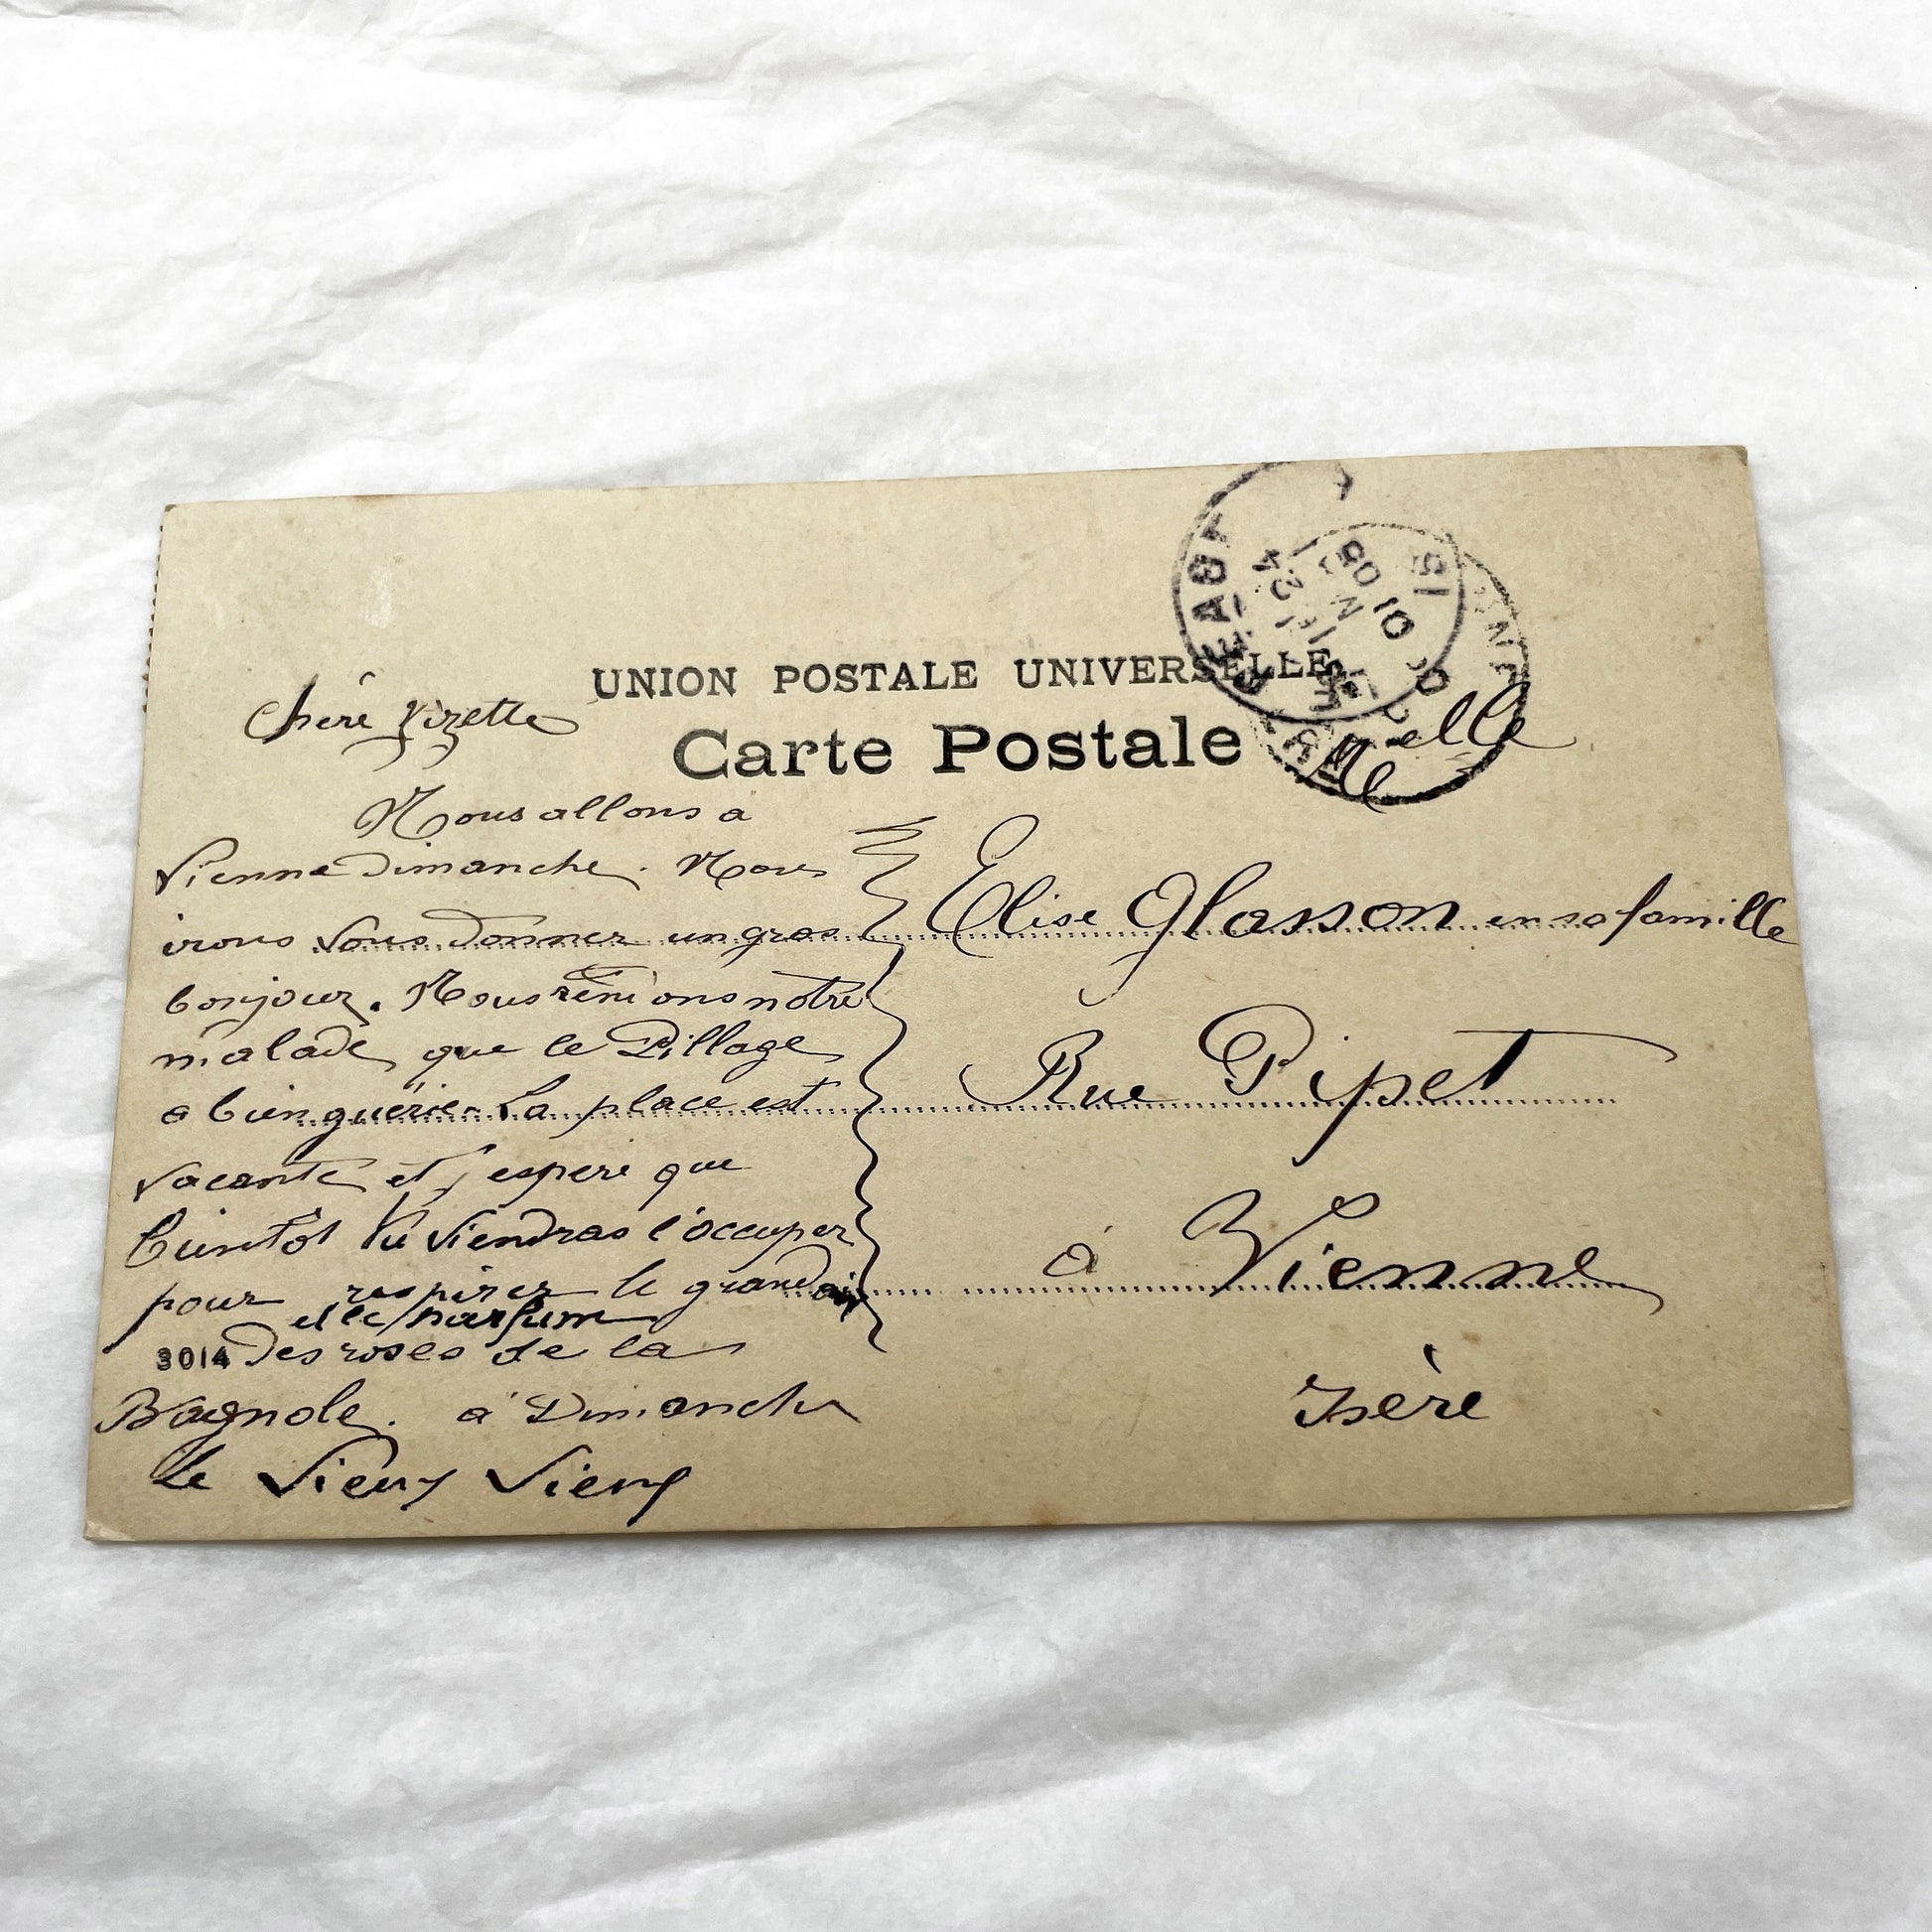 UNION POSTALE UNIVERSELLE
Carte Postale
Chère Vizette
Nous allons a
Vienne Dimanche. Nous
irons vous donner un gros
bonjour. Nous notre
malade que le Village
a bien guérie. La place est
vacante et j'espère que
bientôt tu viendras l'occuper
pour respirer le grand air
et le parfum
3014 des roses de la
Bagnole. à Dimanche
Le Vieux Vieux
Melle
Elise Glasson en sa famille
Rue Pipet
à Vienne
Isère